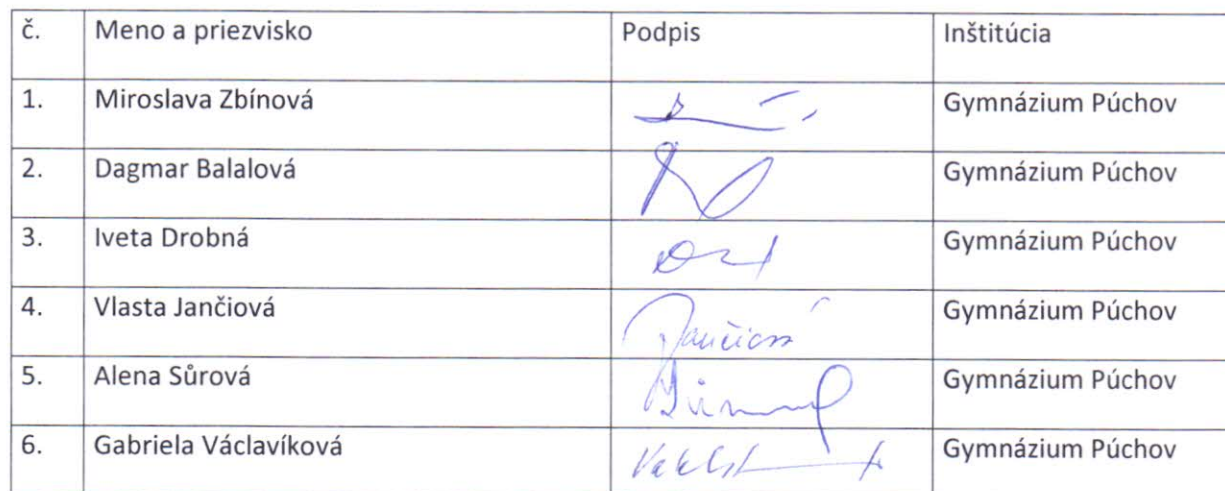 č. Meno a priezvisko Podpis Inštitúcia
1. Miroslava Zbínová Gymnázium Púchov
2. Dagmar Balalová Gymnázium Púchov
3. Iveta Drobná Gymnázium Púchov
4. Vlasta Jančiová Jančiová Gymnázium Púchov
5. Alena Sûrová Gymnázium Púchov
6. Gabriela Václavíková Gymnázium Púchov